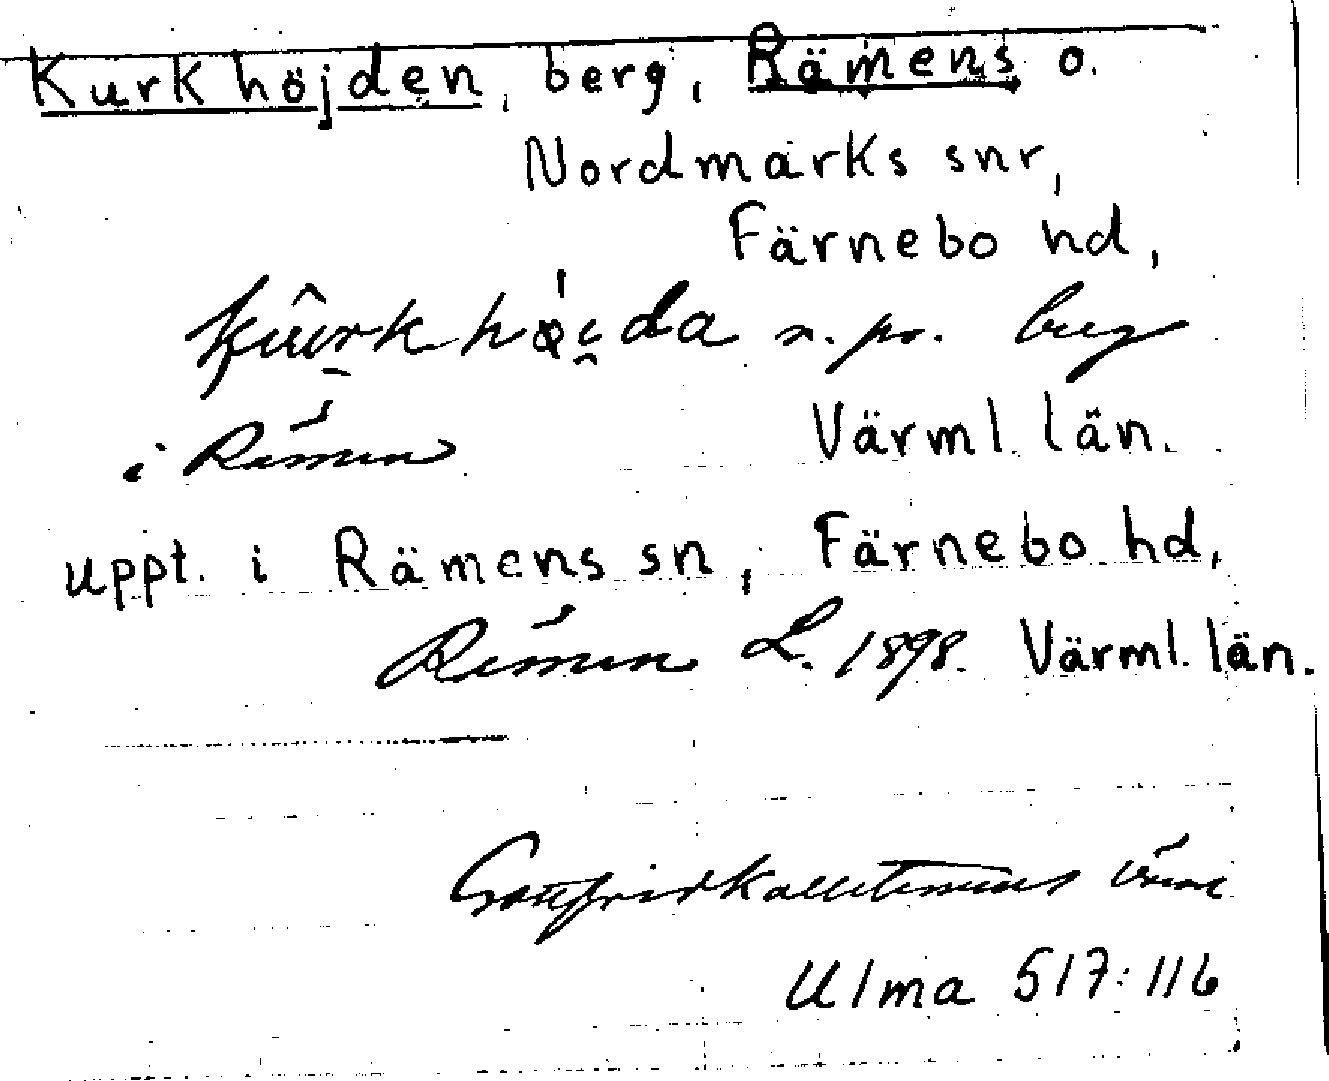 Kurkhöjden, berg, Rämens o.
Nordmarks snr,
Färnebo hd,
n. pr. berg
i Rämen Värml. län.
uppt. i Rämens sn, Färnebo hd,
Rämen L. 1898. Värml. län.
Gottfrid Kallstenius
Ulma 517:116